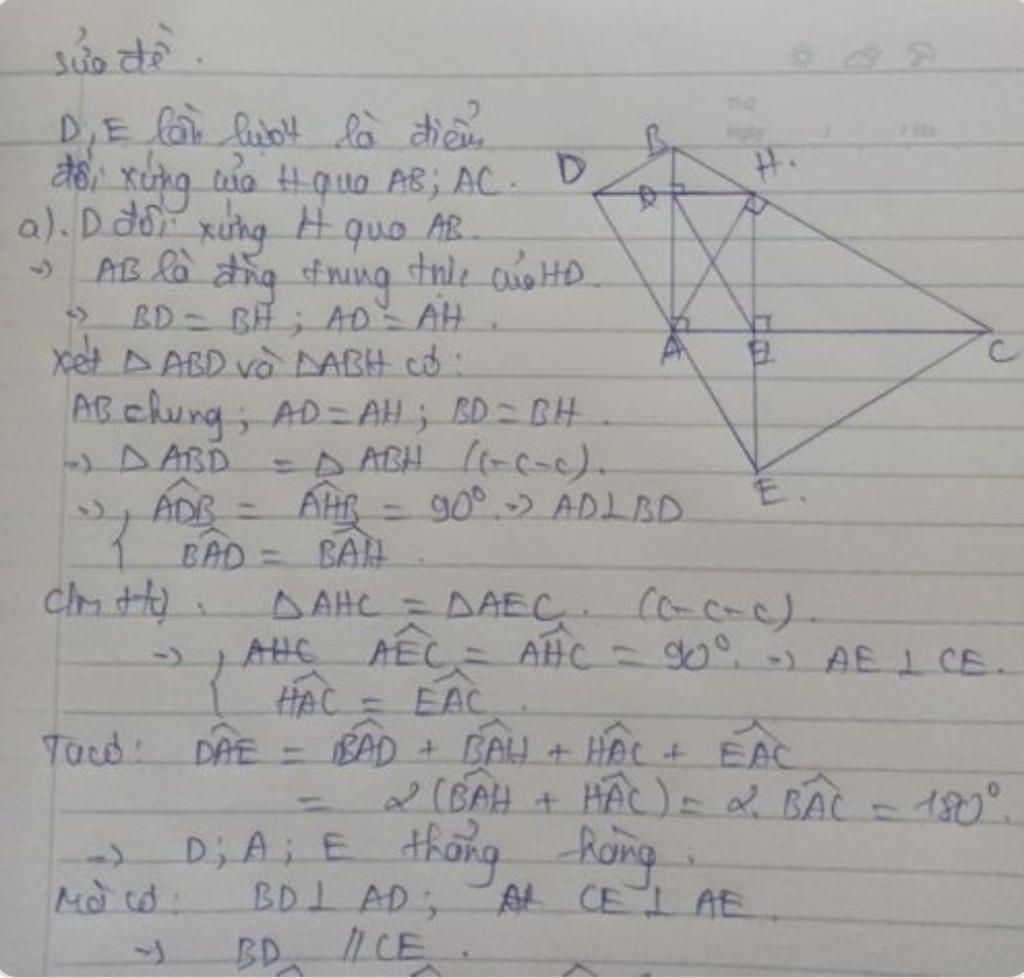 sửa đề.
D, E lần lượt là điểm
đối xứng của H qua AB; AC.
a). D đối xứng H qua AB.
=> AB là đg trung trực của HD.
=> BD = BH ; AD = AH.
Xét △ABD và △ABH có:
AB chung; AD = AH; BD = BH.
=> △ABD = △ABH (c-c-c).
=> { ADB̂ = AHB̂ = 90° => AD⊥BD
{ BAD̂ = BAĤ.
Cm ttự: △AHC = △AEC. (c-c-c).
=> { AEĈ = AHĈ = 90°. => AE ⊥ CE.
{ HAĈ = EAĈ.
Ta có: DAÊ = BAD̂ + BAĤ + HAĈ + EAĈ
= 2(BAĤ + HAĈ) = 2.BAĈ = 180°.
=> D; A; E thẳng hàng.
Mà có: BD⊥ AD; CE ⊥ AE
=> BD // CE.
D
B
H.
A
C
E.
Thứ
Ngày / / No